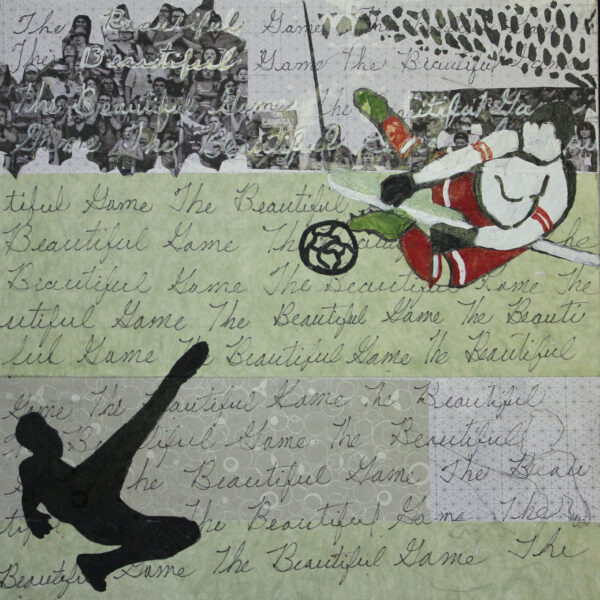 The Beautiful Game The
The Beautiful Game The Beautiful Game
The Beautiful Game The Beautiful Ga
Game The Beautiful
tiful Game The Beautiful
Beautiful Game The The
Beautiful Game The Beautiful Game The
utiful Game The Beautiful Game The Beauti
ful Game The Beautiful Game The Beautiful
Game The Beautiful Game The Beautiful
The Beautiful Game The Beautiful
The Beautiful Game The Beau
The Beautiful Game The
Beautiful Game The Beautiful Game The